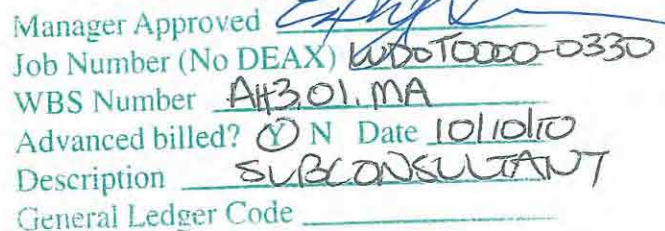 Manager Approved
Job Number (No DEAX) WDOT0000-0330
WBS Number AH3.01.MA
Advanced billed? Y N Date 10/10/10
Description SUBCONSULTANT
General Ledger Code